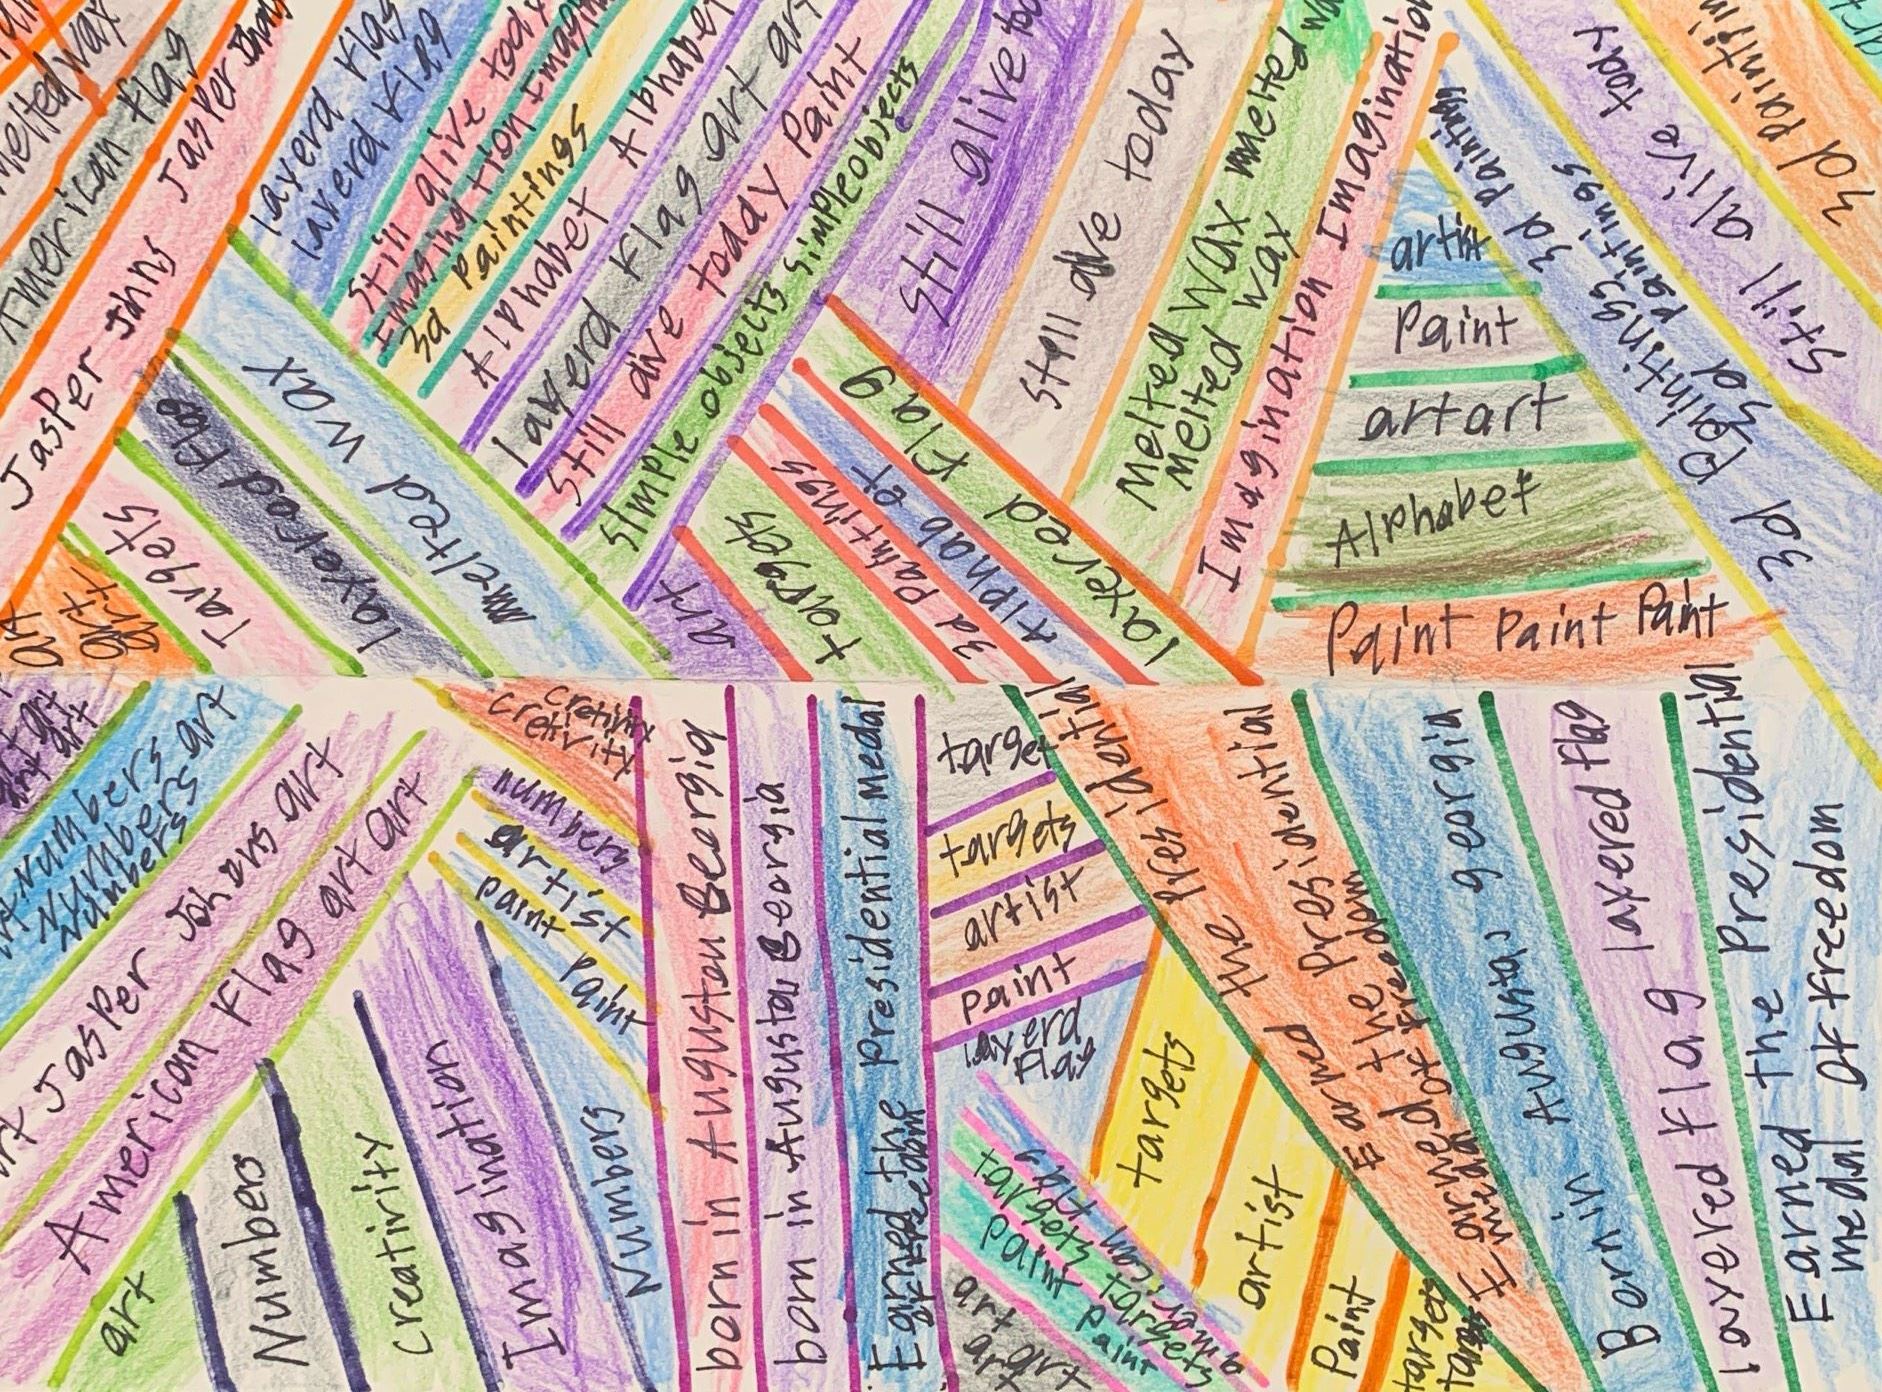 melted wax
American Flag
Jasper Johns Jasper Johns
layerd Flag
laverd Flag
Still alive today
Imagination Imagin
3d Paintings
Alphabet Alphabet
layerd Flag art art
Still alive today Paint
Simple objects simple objects
Still alive tod
Still alive today
Melted Wax melted wa
Melted wax
Imagination Imagination
artist
Paint
art art
Alphabet
Paint Paint Paint
3d painting
3d Paintings 3d paintings
3d Paintings
Still alive today
3d painting
art
art
art
art
Targets
layered Flag
melted wax
art
targets
3d Paintings
Alphabet
layered Flag
art
art
Numbers art
Numbers
Numbers
art Jasper Johns art
American Flag art art
art
Numbers
creativity
Imagination
Numbers
cretivity
cretivity
numbers
artist
paint paint
born in Auguston Georgia
born in Auguston Georgia
Earned the Presidential medal
of Freedom
target
targets
artist
paint
layerd
Flag
american flag
targets targets targets
Paint Paint Paint
art
art art
art
targets
artist
Paint
targets
Earned the Presidential
Earned the Presidential
medal of Freedom
Born in Augusta georgia
layered flag layered flag
Earned the Presidential
medal of freedom